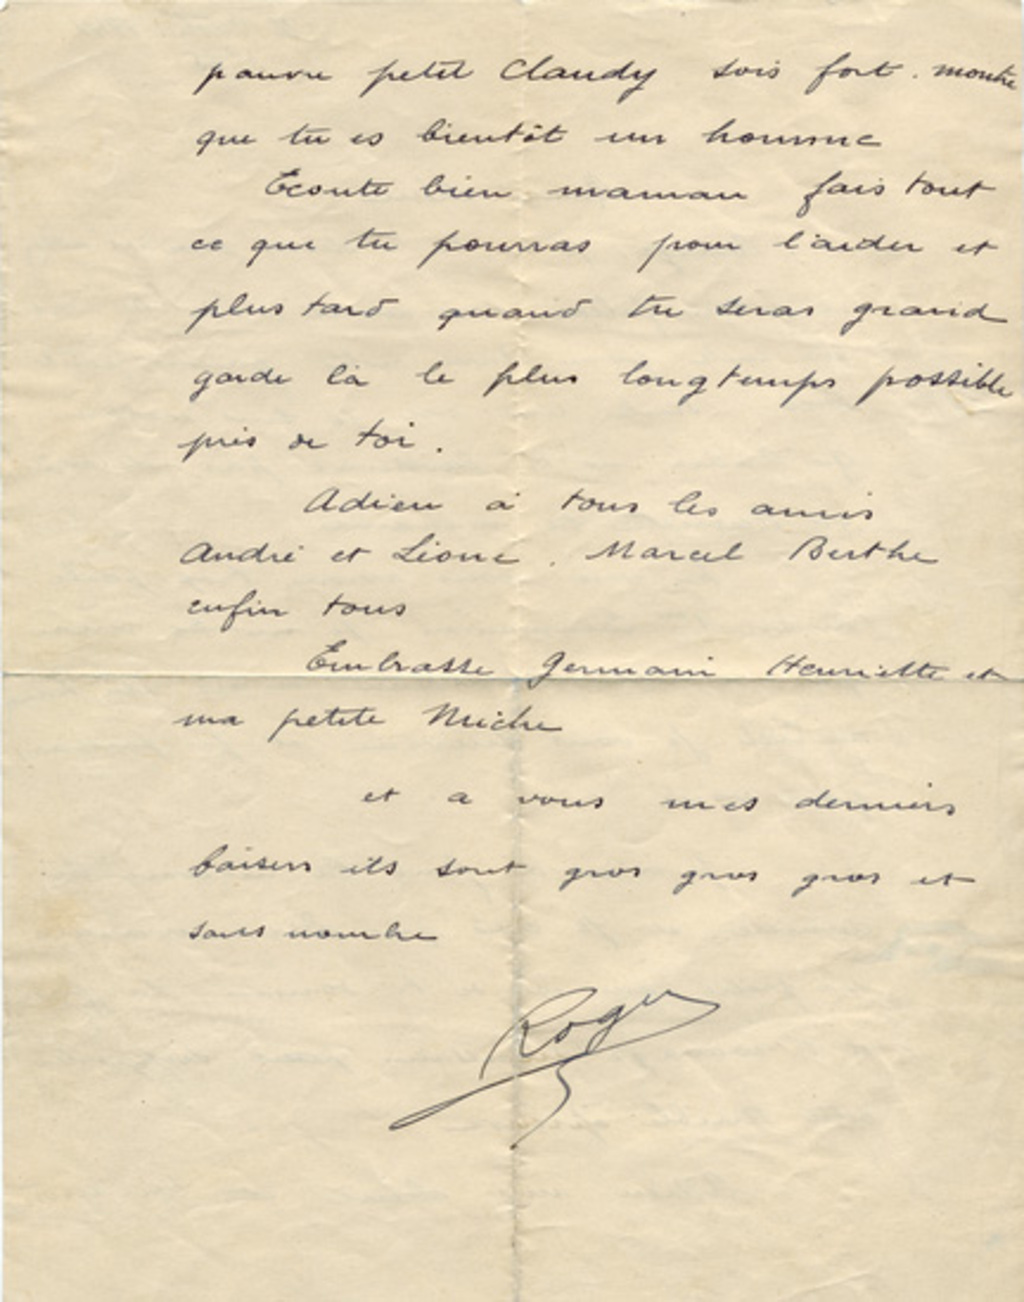 pauvre petit Claudy sois fort. montre
que tu es bientôt un homme
Ecoute bien maman fais tout
ce que tu pourras pour l'aider et
plus tard quand tu seras grand
garde la le plus longtemps possible
près de toi.
Adieu à tous les amis
André et Léone. Marcel Berthe
enfin tous
Embrasse Germain Henriette et
ma petite Miche
et a vous mes derniers
baisers ils sont gros gros gros et
sans nombre
Roger